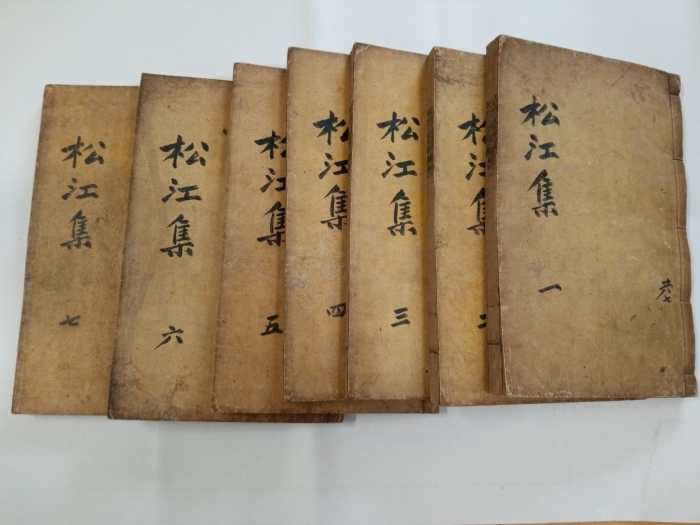 松江集
一
共七
松江集
二
松江集
三
松江集
四
松江集
五
松江集
六
松江集
七